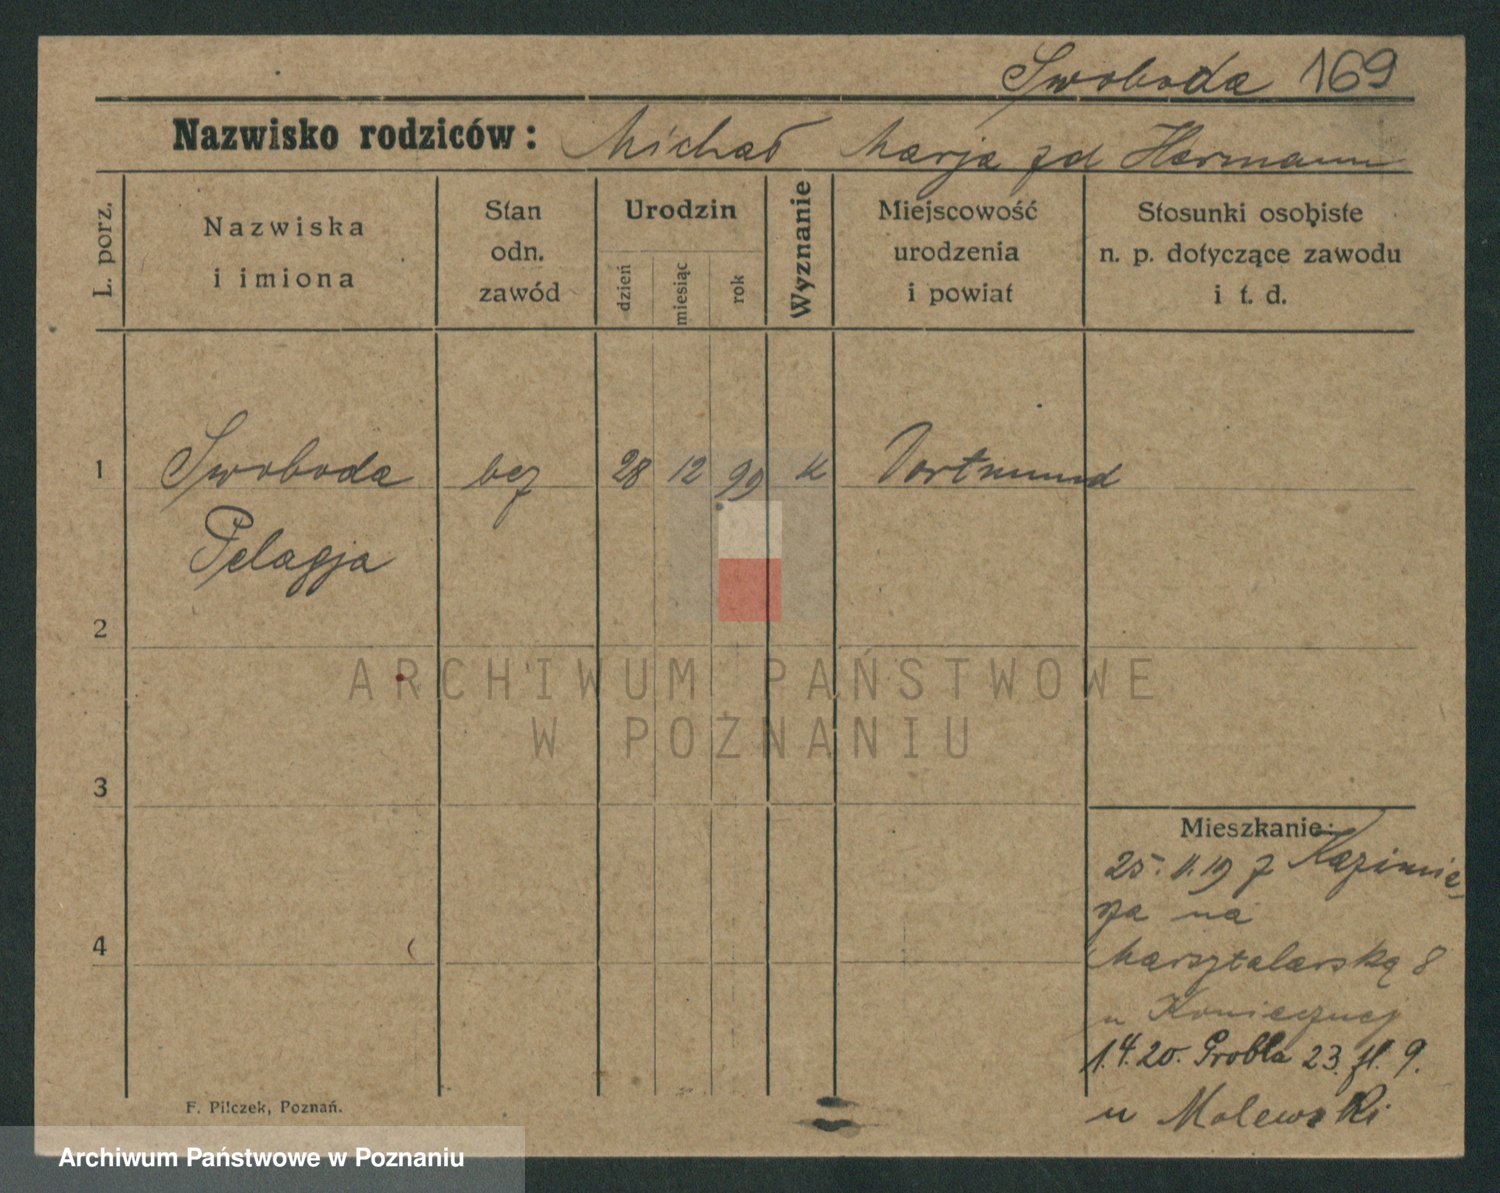 Swoboda 169
Nazwisko rodziców: Michał Marja zd Hermann
L. porz.
Nazwiska
i imiona
Stan
odn.
zawód
Urodzin
dzień
miesiąc
rok
Wyznanie
Miejscowość
urodzenia
i powiat
Stosunki osobiste
n. p. dotyczące zawodu
i t. d.
1 Swoboda bez 28 12 99 k Dortmund
Pelagja
2
3
4
ARCHIWUM PAŃSTWOWE
W POZNANIU
Mieszkanie:
25.11.19 z Kazimie-
rza na
Marsztalarską 8
u Koniecznej
1.4.20. Grobla 23. fl. 9.
u Molewski
F. Pilczek, Poznań.
Archiwum Państwowe w Poznaniu